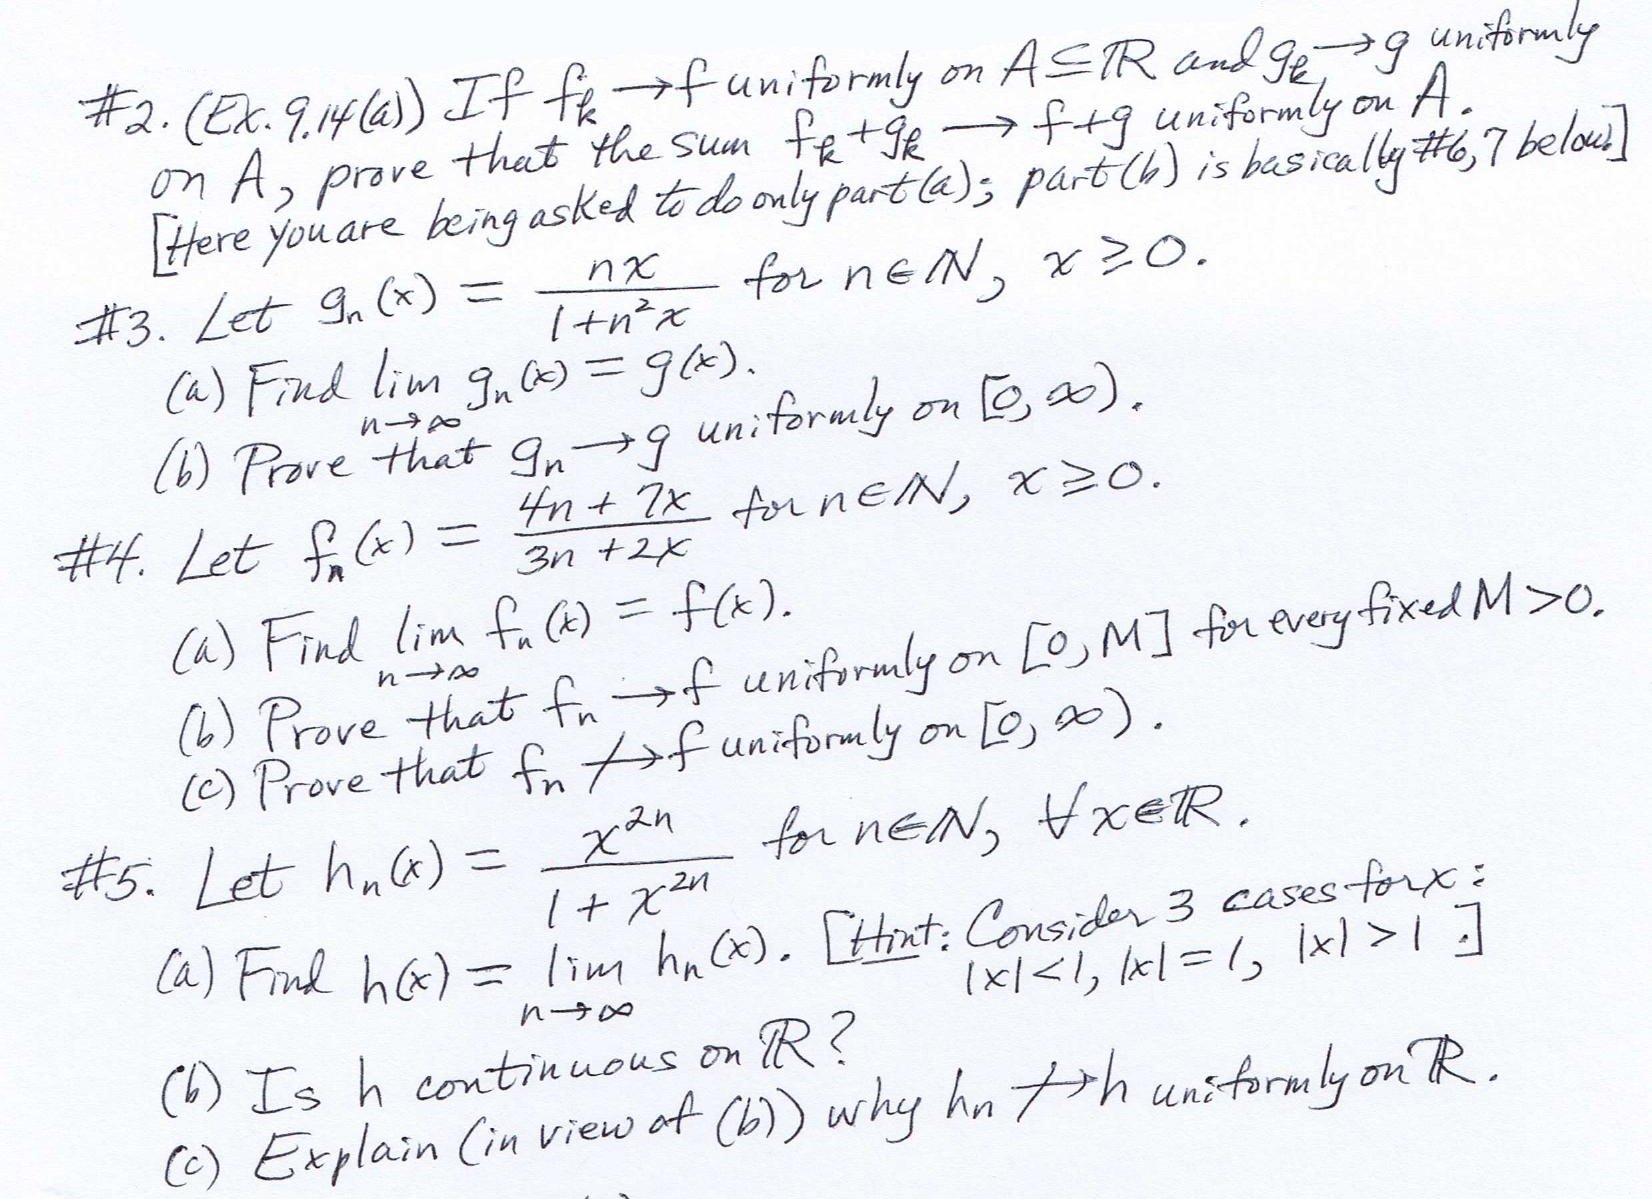 #2. (Ex. 9.14(a)) If fₖ → f uniformly on A ⊆ ℝ and gₖ → g uniformly
on A, prove that the sum fₖ + gₖ → f+g uniformly on A.
[Here you are being asked to do only part (a); part (b) is basically #6,7 below.]
#3. Let gₙ(x) = nx / (1+n²x) for n ∈ ℕ, x ≥ 0.
(a) Find lim n→∞ gₙ(x) = g(x).
(b) Prove that gₙ → g uniformly on [0, ∞).
#4. Let fₙ(x) = (4n + 7x) / (3n + 2x) for n ∈ ℕ, x ≥ 0.
(a) Find lim n→∞ fₙ(x) = f(x).
(b) Prove that fₙ → f uniformly on [0, M] for every fixed M > 0.
(c) Prove that fₙ ↛ f uniformly on [0, ∞).
#5. Let hₙ(x) = x²ⁿ / (1 + x²ⁿ) for n ∈ ℕ, ∀ x ∈ ℝ.
(a) Find h(x) = lim n→∞ hₙ(x). [Hint: Consider 3 cases for x:
|x|<1, |x|=1, |x|>1.]
(b) Is h continuous on ℝ?
(c) Explain (in view of (b)) why hₙ ↛ h uniformly on ℝ.